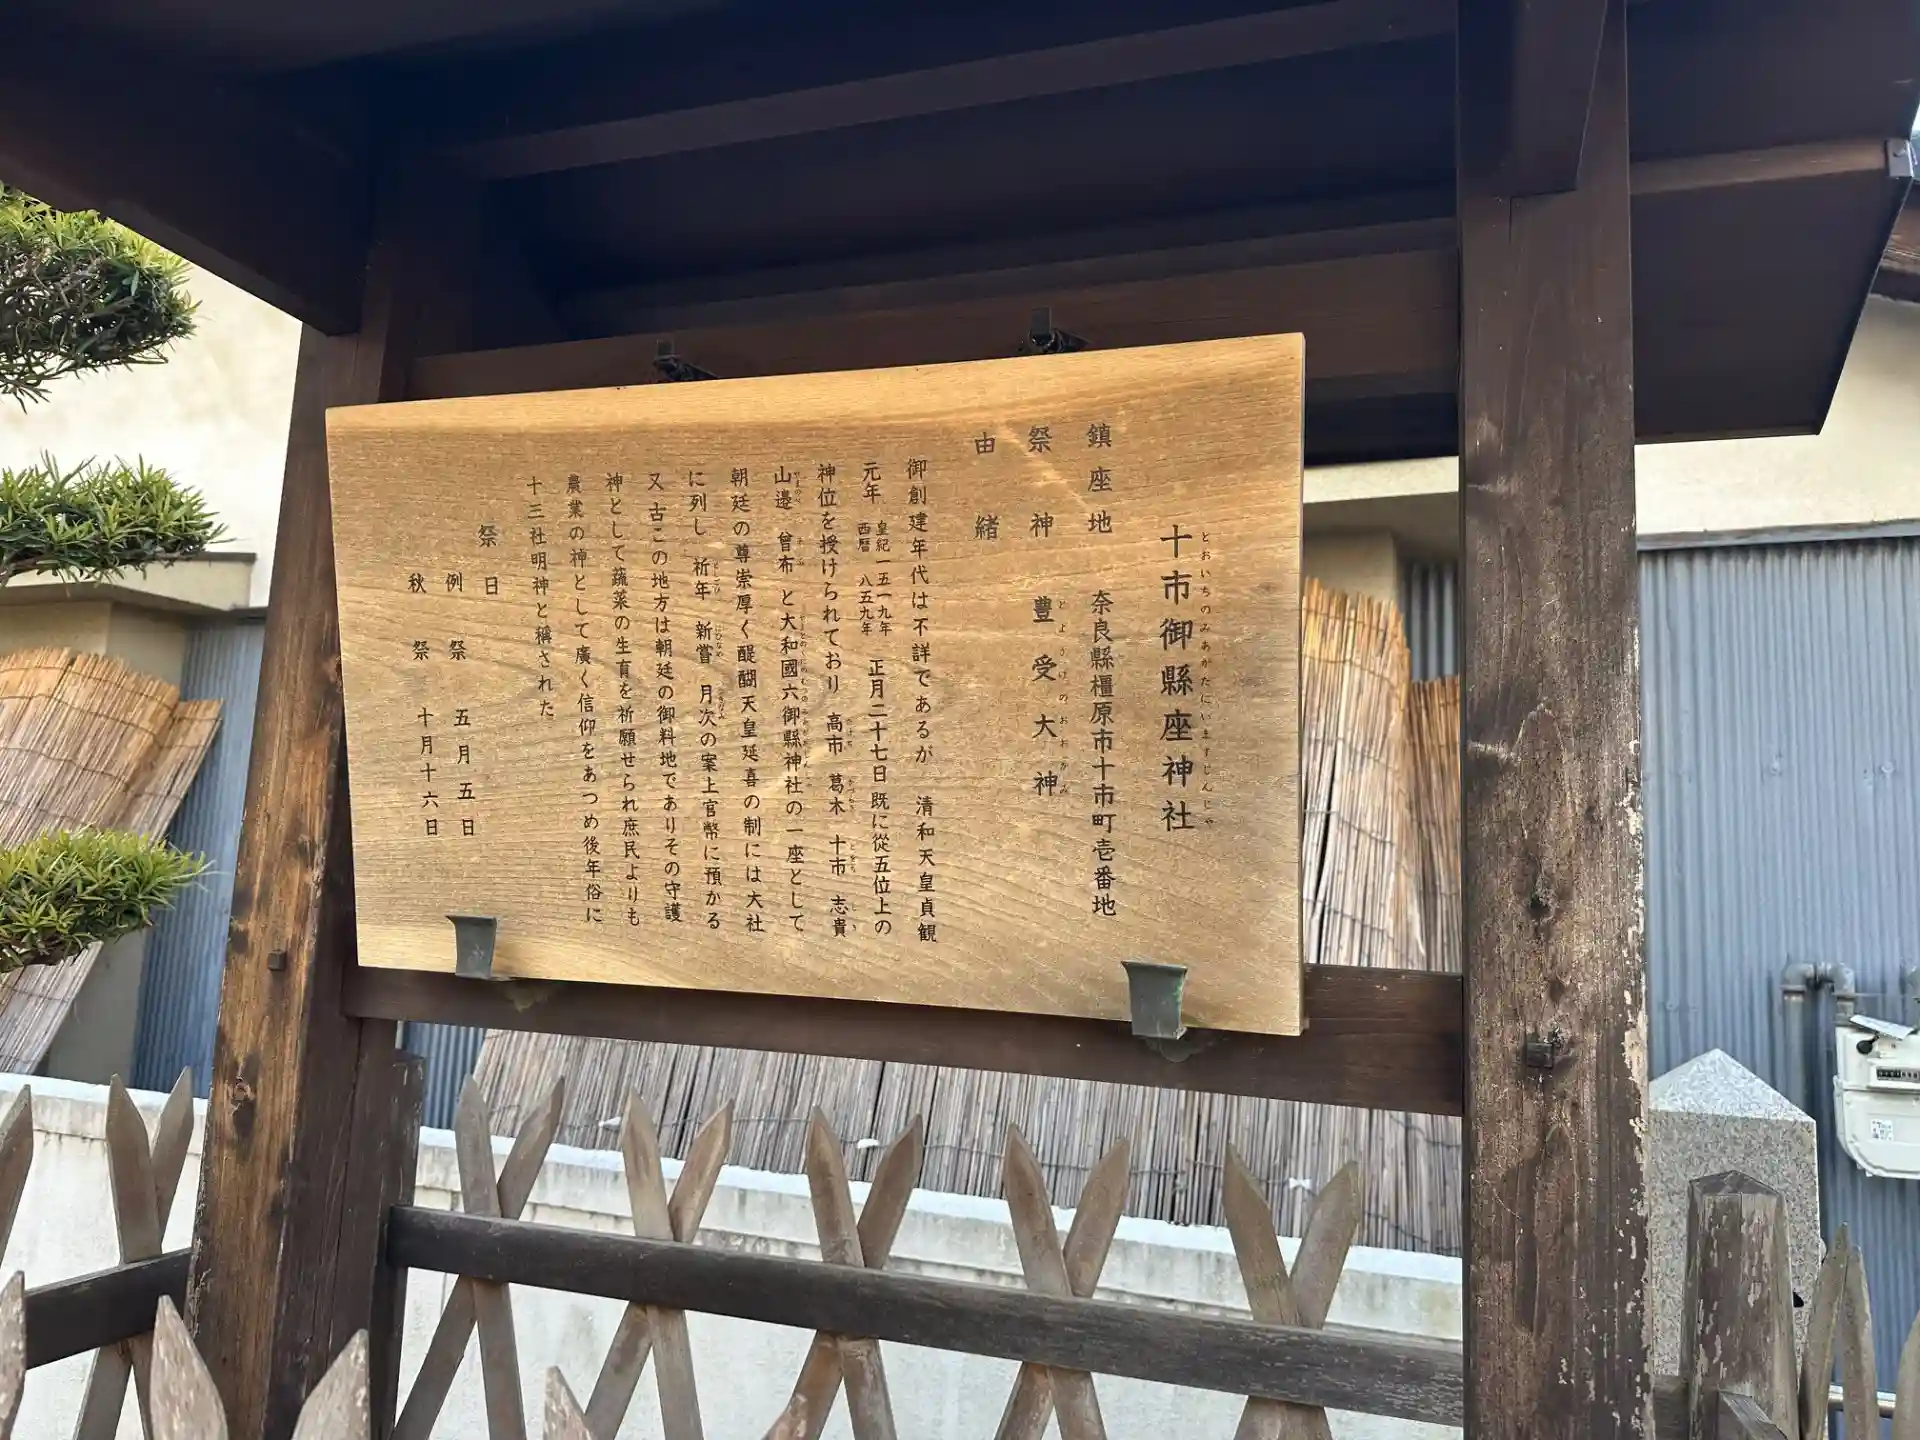 十市御縣座神社
とおいちのみあがたにいますじんじゃ
鎮座地 奈良縣橿原市十市町壱番地
祭神 豊受大神
とようけのおおかみ
由緒
御創建年代は不詳であるが 清和天皇貞観
元年 皇紀一五一九年 西暦八五九年 正月二十七日既に從五位上の
神位を授けられており 高市 葛木 十市 志貴
山邊 曾布 と大和國六御縣神社の一座として
朝廷の尊崇厚く醍醐天皇延喜の制には大社
に列し 祈年 新嘗 月次の案上官幣に預かる
又 古この地方は朝廷の御料地でありその守護
神として蔬菜の生育を祈願せられ庶民よりも
農業の神として廣く信仰をあつめ後年俗に
十三社明神と稱された
祭日
例祭 五月五日
秋祭 十月十六日